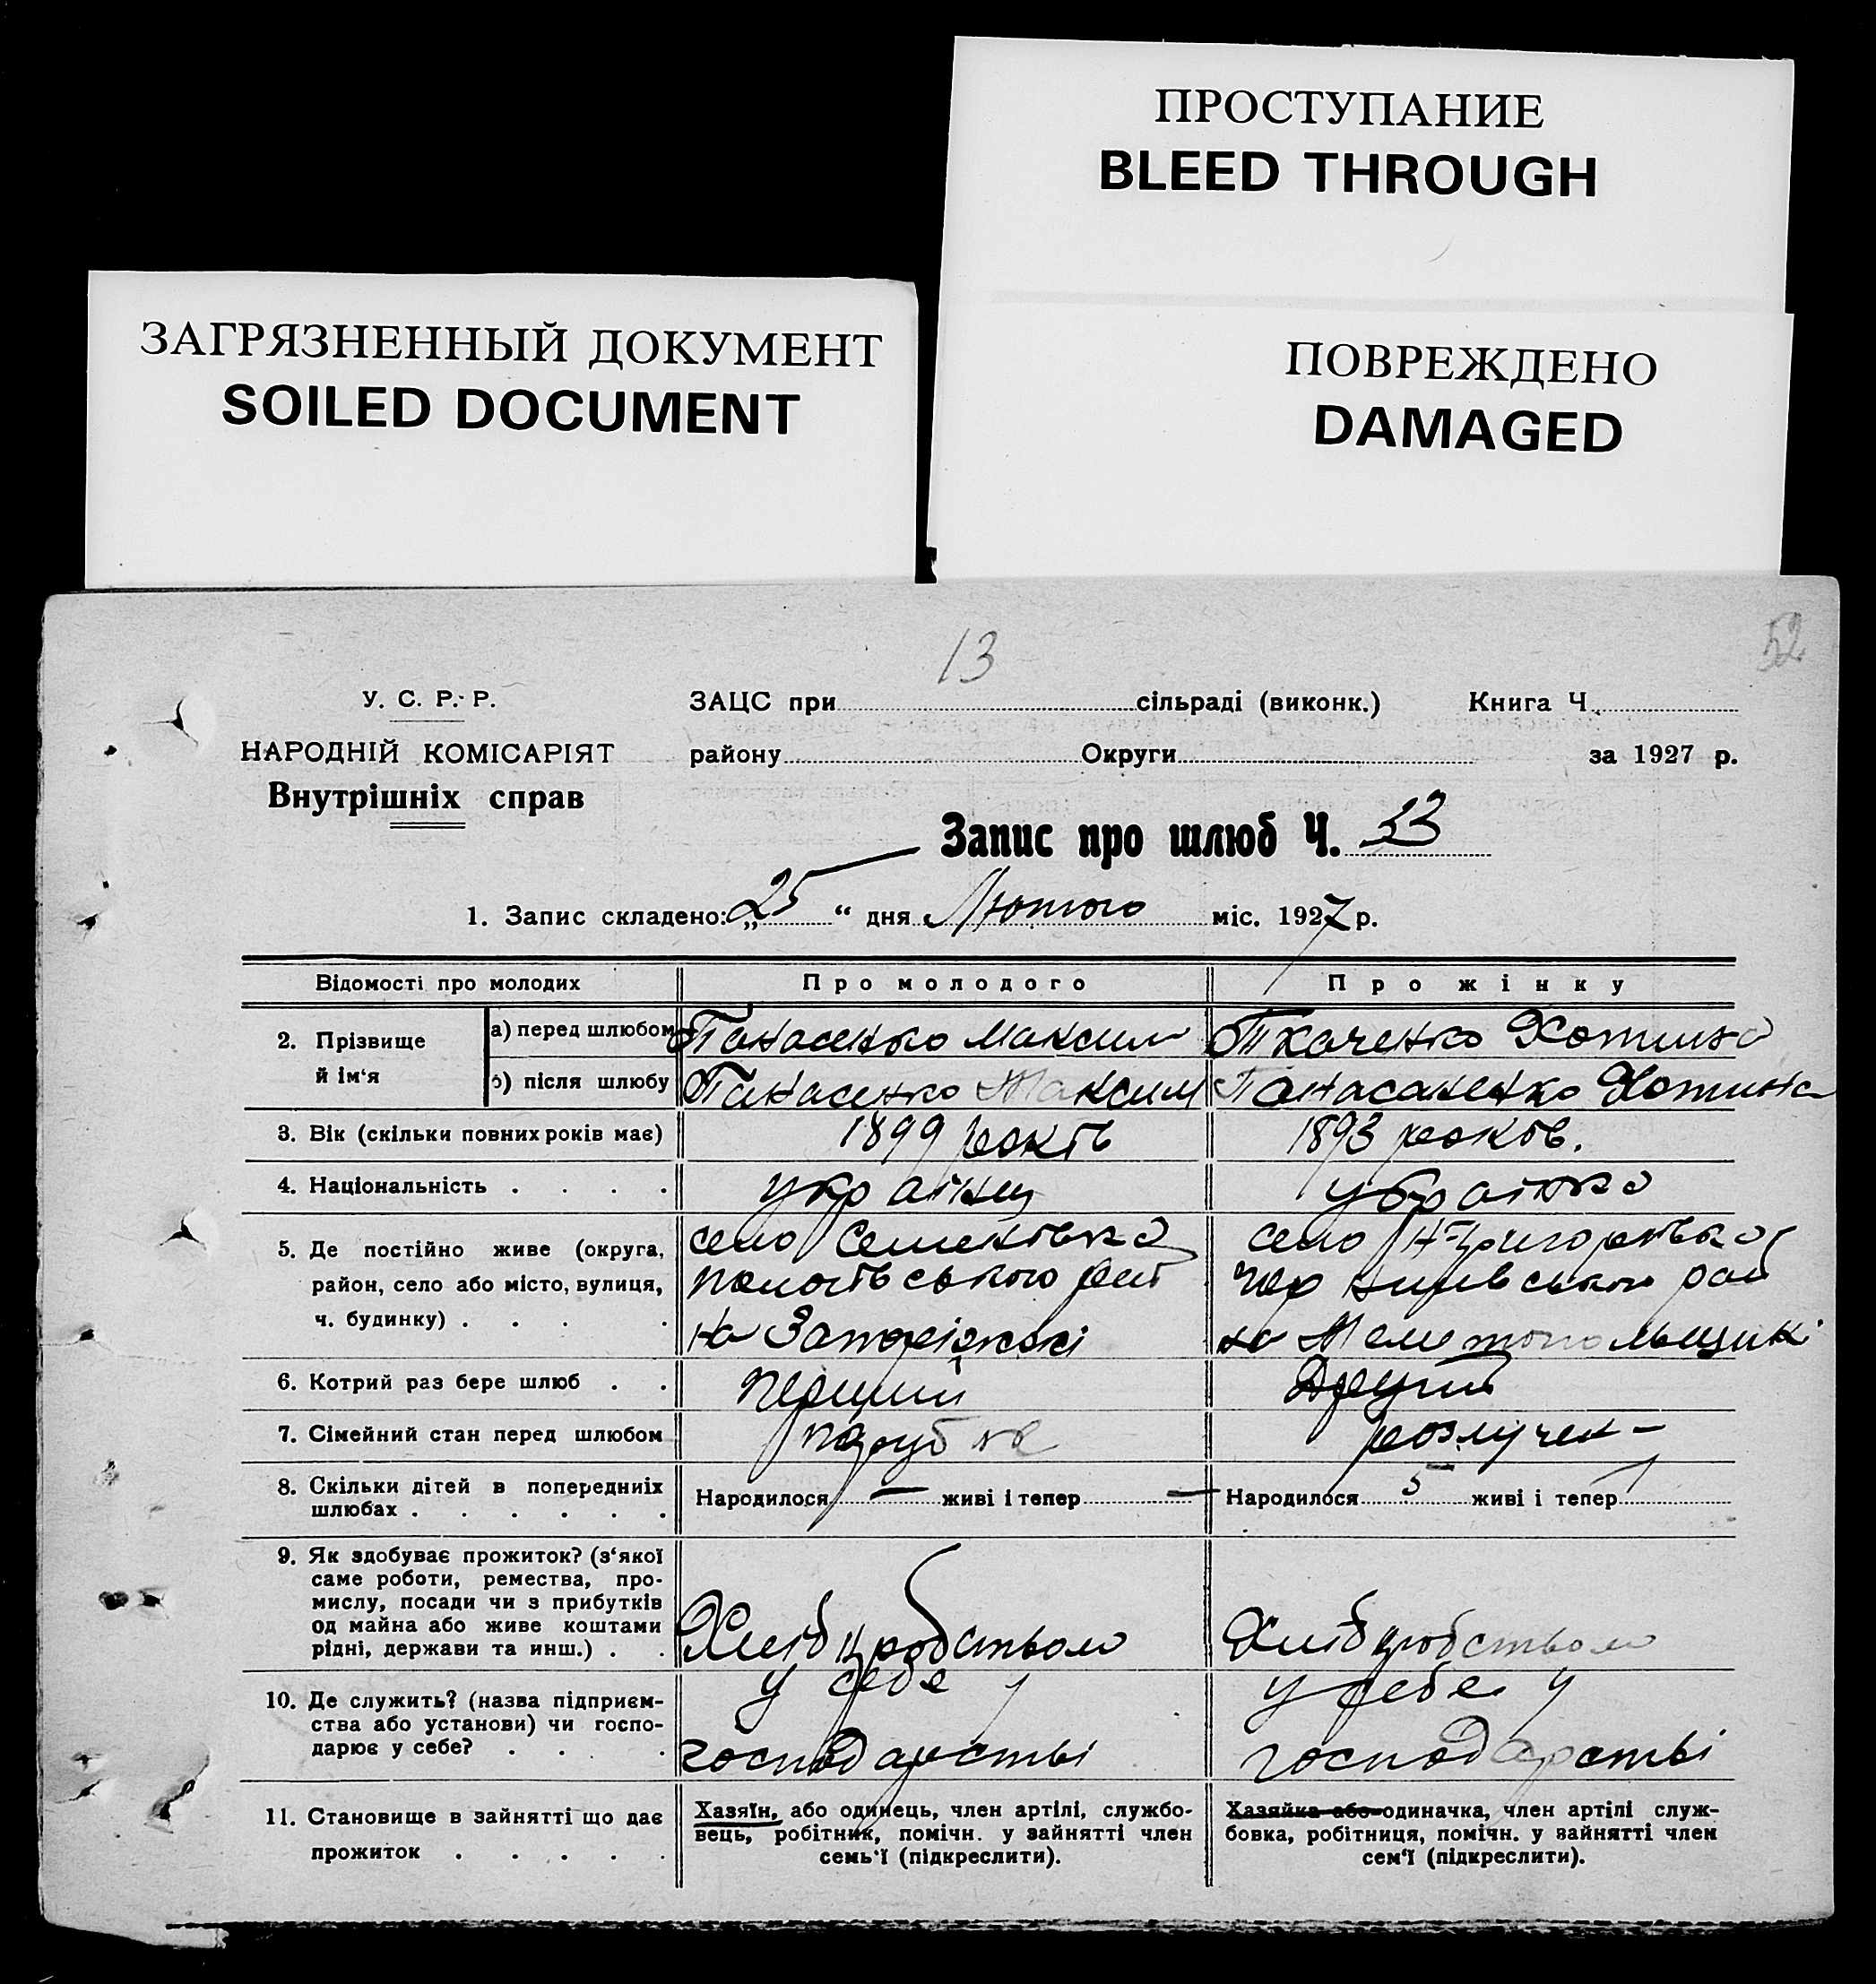 ПРОСТУПАНИЕ
BLEED THROUGH
ЗАГРЯЗНЕННЫЙ ДОКУМЕНТ
SOILED DOCUMENT
ПОВРЕЖДЕНО
DAMAGED
13
52
У. С. Р. Р.
НАРОДНІЙ КОМІСАРІЯТ
Внутрішніх справ
ЗАЦС при сільраді (виконк.) Книга Ч.
району Округи за 1927 р.
Запис про шлюб Ч. 33
1. Запис складено: „25“ дня Лютого міс. 1927 р.
Відомості про молодих Про молодого Про жінку
2. Прізвище й ім‘я
а) перед шлюбом Панасенко Максим Ткаченко Хотина
б) після шлюбу Панасенко Максим Панасаненко Хотина
3. Вік (скільки повних років має) 1899 років 1893 років.
4. Національність . . . . україн українка
5. Де постійно живе (округа, село Семенівка село Н-Григорівка
район, село або місто, вулиця, ського рай ського рай
ч. будинку) . . . . на Запоріжжі на Мелетопольщині
6. Котрий раз бере шлюб . . перший Другий
7. Сімейний стан перед шлюбом парубок розлучен-
8. Скільки дітей в попередніх
шлюбах . . . . . . Народилося — живі і тепер — Народилося 5 живі і тепер 1
9. Як здобуває прожиток? (з‘якої
саме роботи, ремества, про-
мислу, посади чи з прибутків
од майна або живе коштами
рідні, держави та инш.) . . Хлібуробством Хлібробством
10. Де служить? (назва підприєм- у себе у у себе у
ства або установи) чи госпо-
дарює у себе? . . . . господарстві господарстві
11. Становище в зайнятті що дає
прожиток . . . . .
Хазяїн, або одинець, член артілі, службо-
вець, робітник, помічн. у зайнятті член
семь‘ї (підкреслити).
Хазяйка або одиначка, член артілі служ-
бовка, робітниця, помічн. у зайнятті член
сем‘ї (підкреслити).